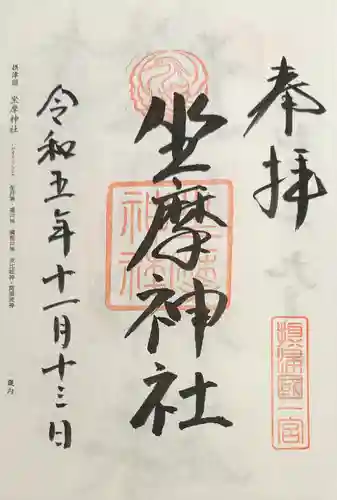 奉拝
摂津國一宮
坐摩神社
坐摩神社
令和五年十一月十三日
摂津国 坐摩神社